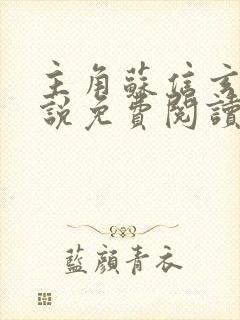 主角蘇信玄
說免費閱讀
藍顏青衣